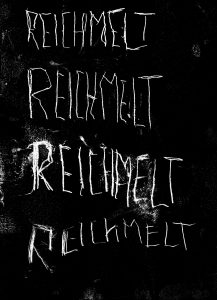 REICHMELT
REICHMELT
REICHMELT
REICHMELT